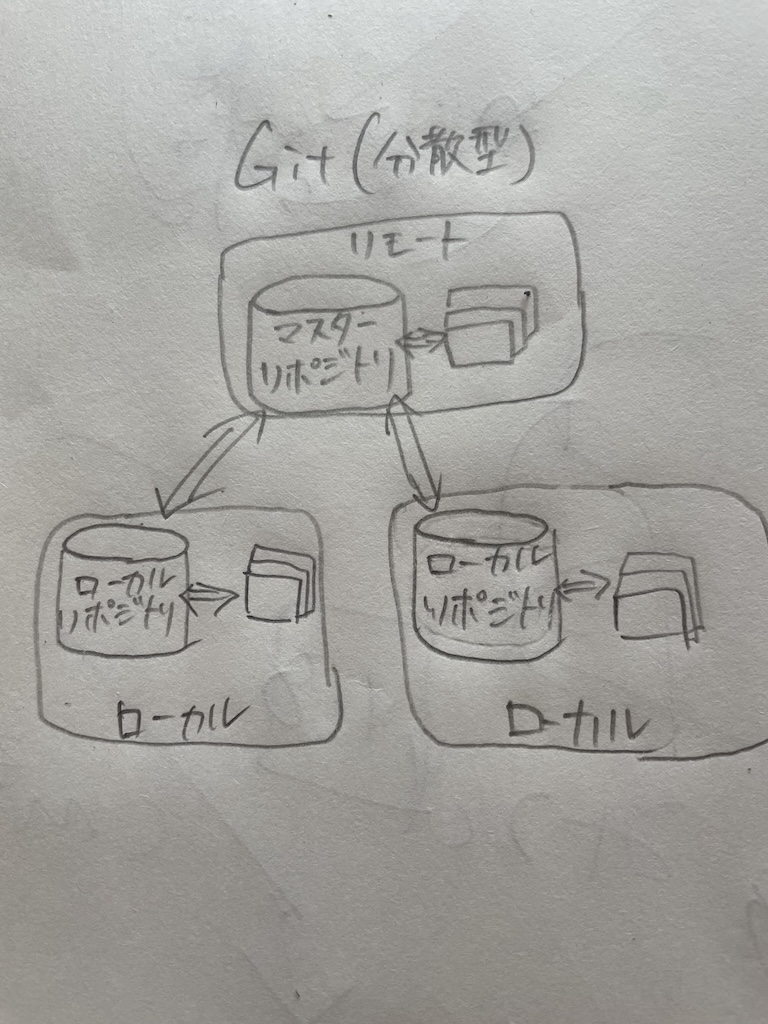 Git (分散型)
リモート
マスター
リポジトリ
ローカル
リポジトリ
ローカル
ローカル
リポジトリ
ローカル